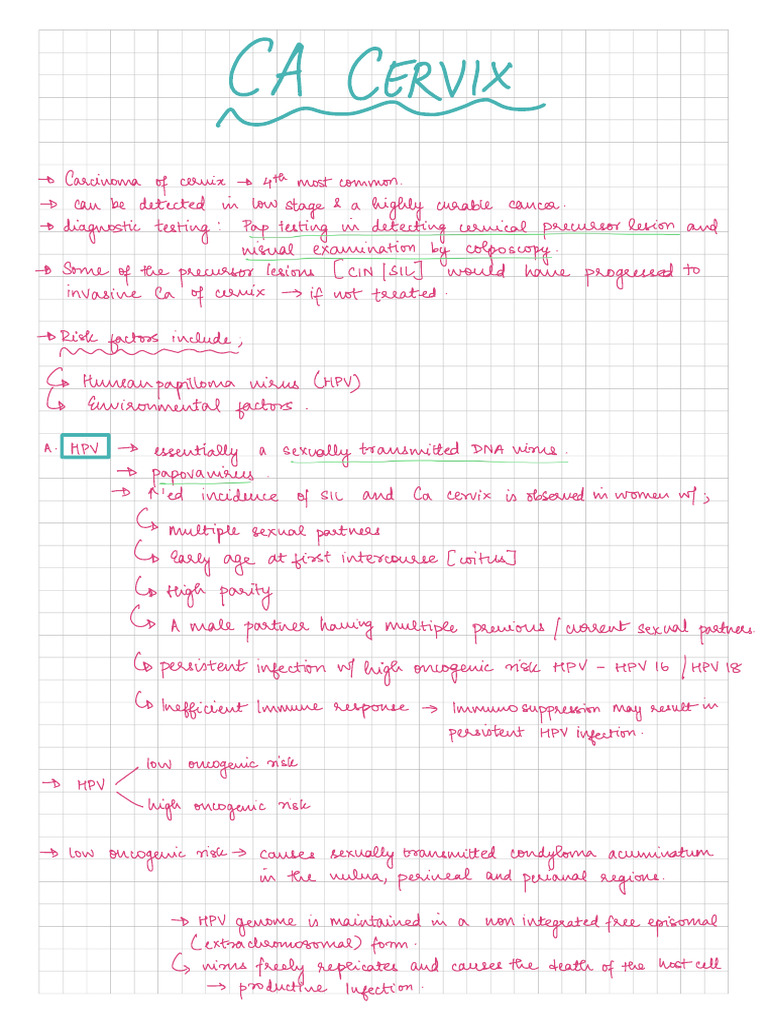 CA CERVIX
→ Carcinoma of cervix → 4th most common.
→ can be detected in low stage & a highly curable cancer.
→ diagnostic testing : Pap testing in detecting cervical precursor lesion and
visual examination by colposcopy.
→ Some of the precursor lesions [CIN/SIL] would have progressed to
invasive Ca of cervix → if not treated.
→ Risk factors include,
↳ Human papilloma virus (HPV)
↳ Environmental factors.
A. HPV → essentially a sexually transmitted DNA virus.
→ papovavirus.
→ ↑'ed incidence of SIL and Ca cervix is observed in women w/;
↳ multiple sexual partners
↳ Early age at first intercourse [coitus]
↳ High parity
↳ A male partner having multiple previous / current sexual partners.
↳ persistent infection w/ high oncogenic risk HPV - HPV 16 / HPV 18
↳ Inefficient Immune response → Immunosuppression may result in
persistent HPV infection.
low oncogenic risk
→ HPV
high oncogenic risk
→ low oncogenic risk → causes sexually transmitted condyloma acuminatum
in the vulva, perineal and perianal regions.
→ HPV genome is maintained in a non integrated free episomal
(extrachromosomal) form.
↳ virus freely replicates and causes the death of the host cell
→ productive Infection.